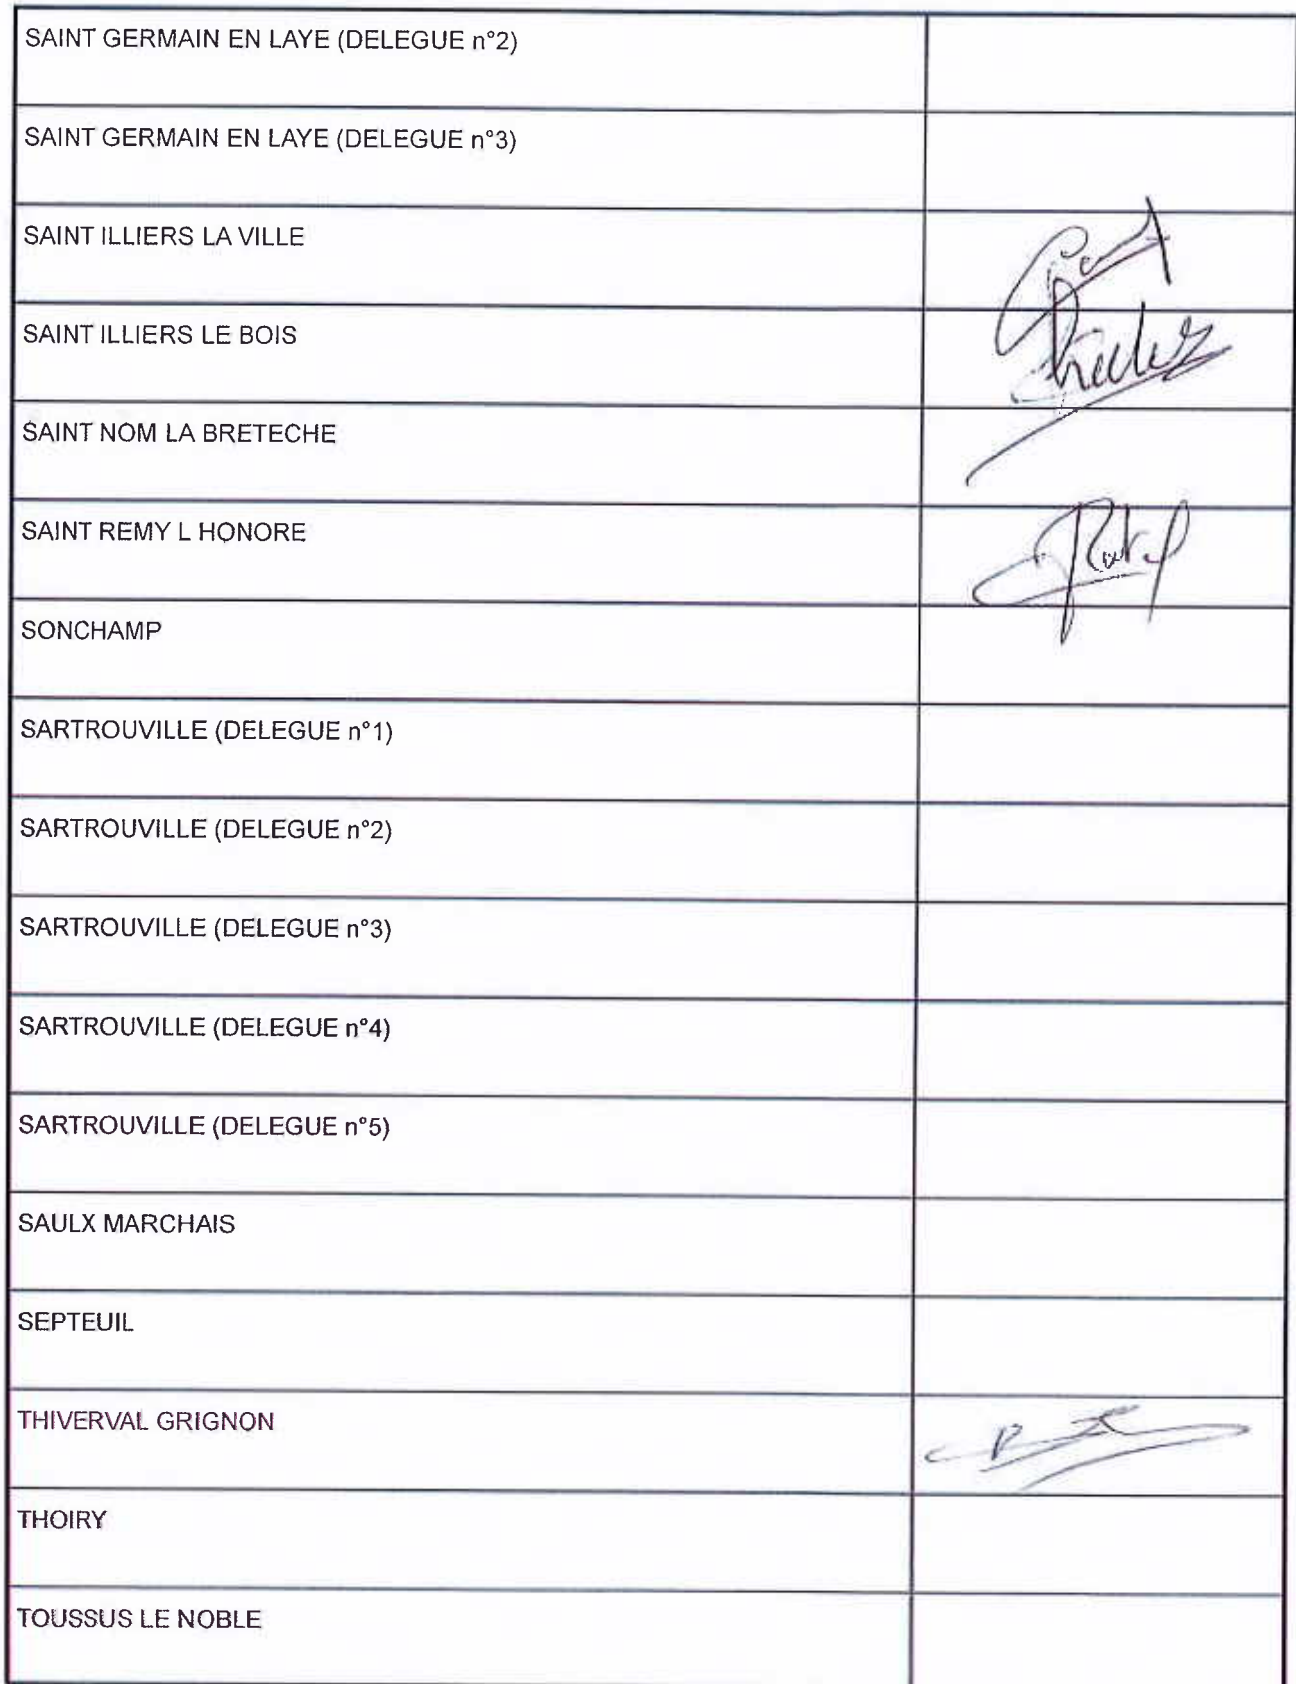 SAINT GERMAIN EN LAYE (DELEGUE n°2)
SAINT GERMAIN EN LAYE (DELEGUE n°3)
SAINT ILLIERS LA VILLE
SAINT ILLIERS LE BOIS
SAINT NOM LA BRETECHE
SAINT REMY L HONORE
SONCHAMP
SARTROUVILLE (DELEGUE n°1)
SARTROUVILLE (DELEGUE n°2)
SARTROUVILLE (DELEGUE n°3)
SARTROUVILLE (DELEGUE n°4)
SARTROUVILLE (DELEGUE n°5)
SAULX MARCHAIS
SEPTEUIL
THIVERVAL GRIGNON
THOIRY
TOUSSUS LE NOBLE